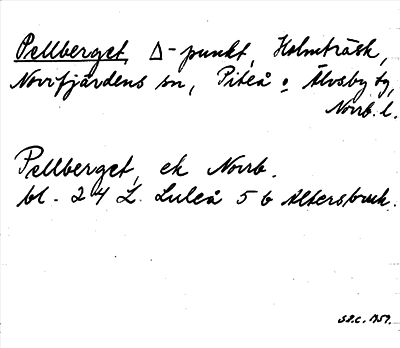 Pellberget, Δ-punkt, Holmträsk,
Norrfjärdens sn, Piteå o Älvsby tg,
Norrb. l.
Pellberget, ek Norrb.
bl. 24 L. Luleå 5 b Altersbruk.